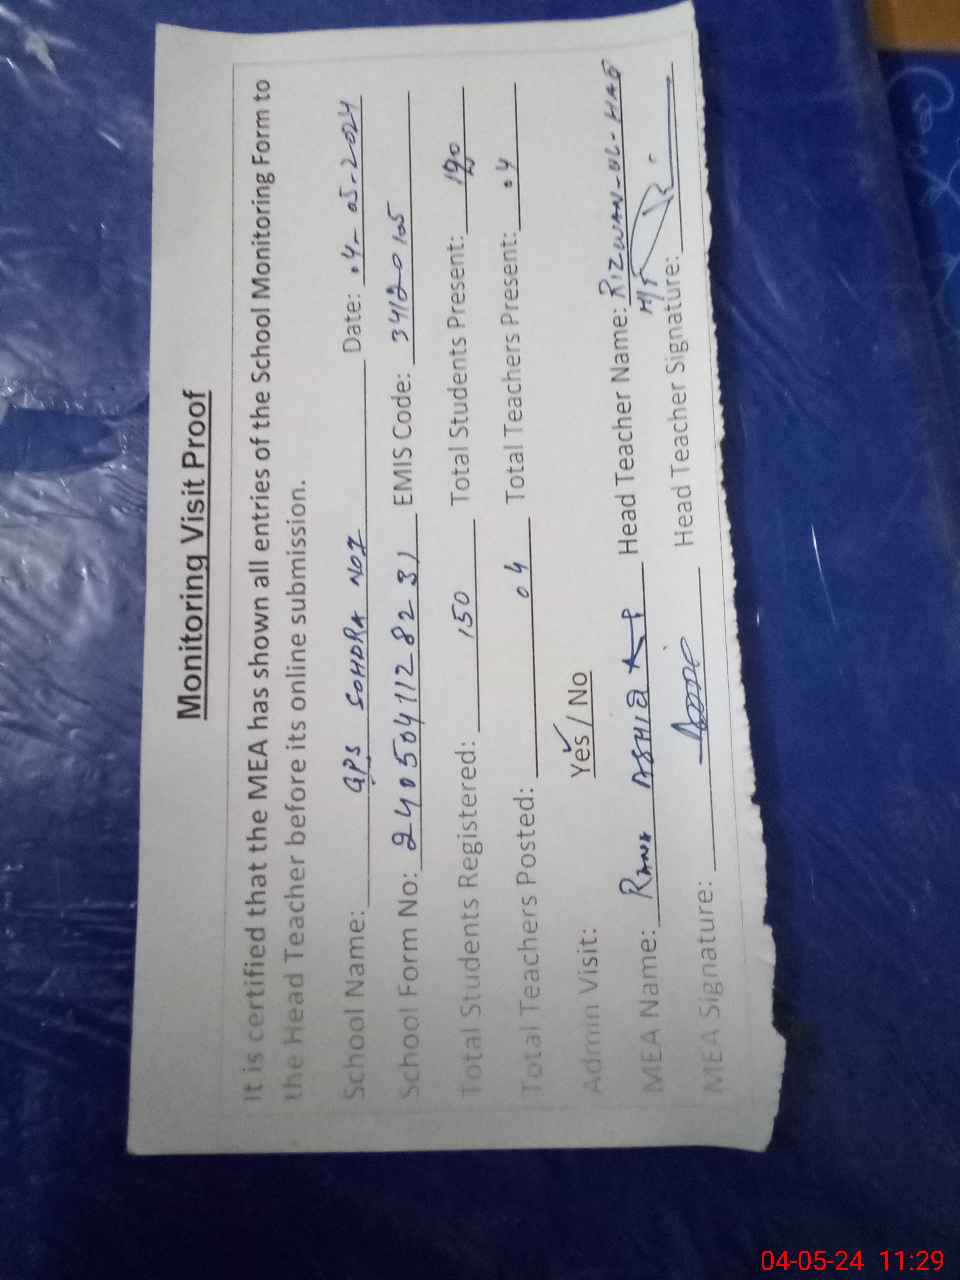 Monitoring Visit Proof
It is certified that the MEA has shown all entries of the School Monitoring Form to
the Head Teacher before its online submission.
School Name: GPS SOHDRA NO1 Date: 04-05-2024
School Form No: 2405041128231 EMIS Code: 34120105
Total Students Registered: 150 Total Students Present:
Total Teachers Posted: 04 Total Teachers Present: 04
Admin Visit: Yes / No
MEA Name: RANA Head Teacher Name: RIZWAN-UL-HAQ
MEA Signature: Head Teacher Signature: H/T
04-05-24 11:29